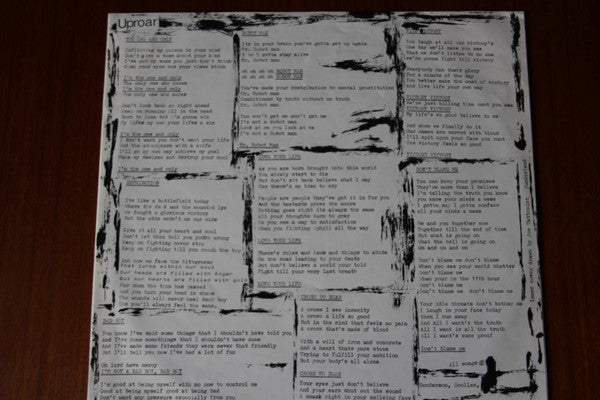 Uproar
YOU AND ONLY
Inflicting my poison in your mind
Don't give a damn about your kind
I've got my eyes you just don't think
Open your eyes one your views stink
I'm the one and only
The only one who knows
I'm the one and only
The only one who cares
Don't look back go right ahead
Keep on running ill in the head
Born to lose but I'm gonna win
My lifes my own your lifes a sin
I'm the one and only
I don't want you don't want your life
Cut the atmosphere with a knife
I'll go my own way achieve my goal
Make my desires and destroy your soul
I'm the one and only
DESTRUCTION
Its like a battlefield today
Where the dead and the wounded lye
We fought a glorious victory
But the odds weren't on our side
Give it all your heart and soul
Don't let them tell you you're wrong
Keep on fighting never stop
Keep on fighting till you reach the top
And now we face the bitterness
That lures within our soul
Our heads are filled with anger
But our hearts are filled with
For when the time has passed
And you turn your head in shame
The wounds will never heal
Cos you'll always feel the same.
BAD BOY
You know I've said some things that I shouldn't have told you
And I've done somethings that I shouldn't have done
And I've made some friends they were never that friendly
But I'll tell you now I've had a lot of fun
Oh lord have mercy
I'M NOT A BAD BOY, BAD BOY
I'm good at being myself with no one to control me
Good at being myself good at being bad
Don't want any pressure especially from you
ROBOT MAN
Its in your train you've gotta get up again
Mr. Robot man
You've gotta stay alive
Mr. Robot man
oh oh oh oh ROBOT MAN
oh oh oh oh ROBOT MAN
You've made your contribution to mental prostitution
Mr. Robot man
Conditioned by truth without no truth
Mr. Robot man
You won't get me won't get me
I'm not a robot man
Look at me you look at me
I'm not a Robot man
Mr. Robot Man
LOSE YOUR LIFE
As you are born brought into this world
You slowly start to die
But don't sit back believe what I say
Cos there's no time to cry
People are people they've got it in for you
And the bastards prove the score
Nothing goes right its always the same
All your thoughts turn to gray
Do you see a way to satisfaction
When you fighting uphill all the way
LOVE YOUR LIFE
There's rules and laws and things to abide
The road leading to your death
But don't believe a world your told
Fight till your very last breath
LOVE YOUR LIFE
CROSS TO BEAR
A cross I see insanity
A cross a life so good
But in the mind that feels no pain
A cross that's made of blood
With a will of iron and concrete
And a heart thats pure stone
Trying to fulfill your ambition
But your body's all alone
CROSS TO BEAR
Your eyes just don't believe
And your ears shut out the sound
A smack right in your smiling face
VICTORY
You laugh at all our victory's
One day we'll make you see
That we don't listen to you
we're gonna fight till victory
Everybody has their glory
For a minute of the day
You better make the most of victory
And live your own way
VICTORY VICTORY
we're just killing time cant you see
VICTORY VICTORY
My life's so good believe in me
And when we finally do it
Our names are carved with blood
I'll spit upon your face you cunt
Cos victory feels so good
VICTORY VICTORY
DON'T BLAME ME
You can keep your promises
They're more than I believe
I'm telling the truth you know
you know your minds a mess
I gotta as, I gotta confess
all your minds a mess
Me and you together now
Together till the end of time
But what is going on
What the hell is going on
On and on and on
Don't blame me don't blame
When you see your world shatter
Don't blame me
When your on the 11th hour
Don't blame me
Don't blame me don't blame me
Your idle threats don't bother me
I laugh in your face today
then I run away
And all I want's the truth
all I want is all the truth
And all I want's some proof
Don't blame me
All songs
Henderson, Scollen,